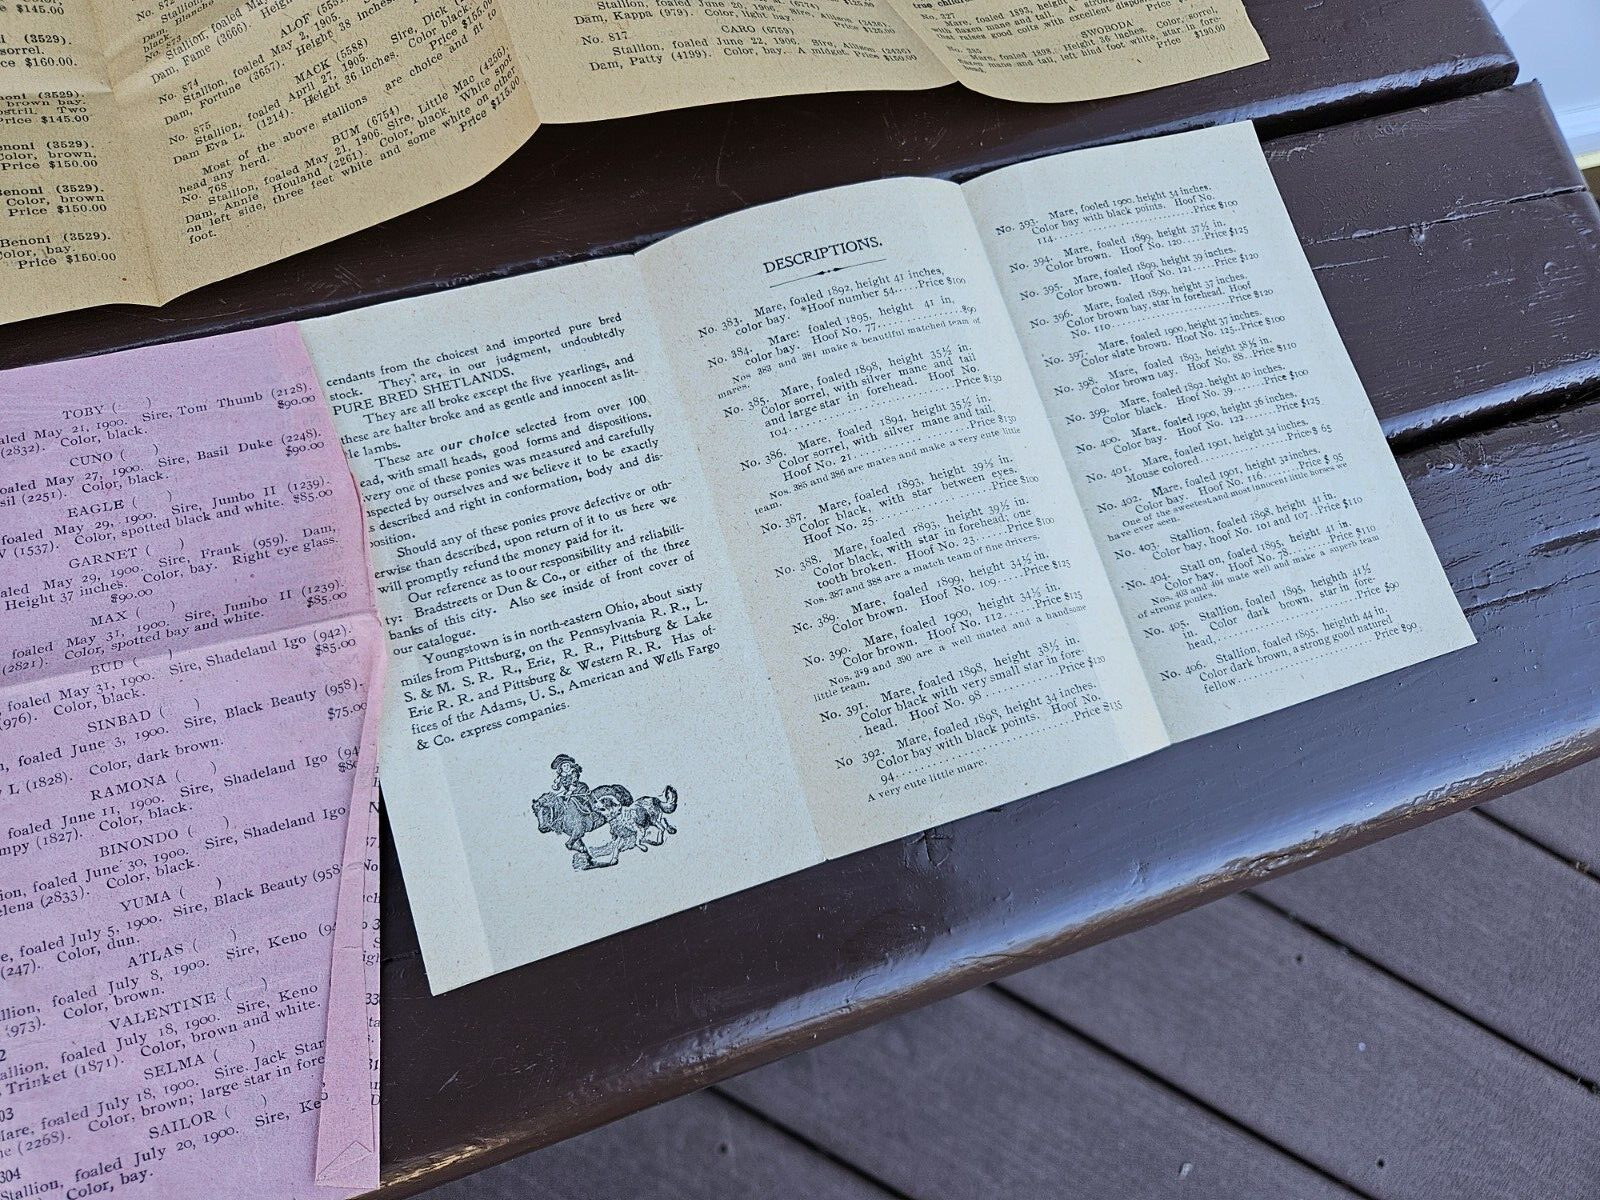 (3529).
sorrel.
Price $160.00
Benoni (3529).
brown bay.
Two
Price $145.00
Benoni (3529).
Color, brown,
Price $150.00
Benoni (3529).
Color, brown
Price $150.00
Benoni (3529).
Color, bay.
Price $150.00
Dam, Fame (3666).
ALOF
No. 874
Stallion, foaled May 2, 1905.
Dam, Fortune (3657). Height 38 inches.
MACK (5588)
No. 875
Stallion, foaled April 27, 1905. Sire, Dick
Dam Eva L. (1214). Height 36 inches. Color, black.
Price $155.00
Most of the above stallions are choice and fit to
head any herd.
BUM (6754)
No. 768
Stallion, foaled May 21, 1906. Sire, Little Mac (4256)
Dam, Annie Houland (2261). Color, black. White spot
on left side, three feet white and some white on other
foot.
Price $115.00
Stallion, foaled June 20, 1906.
Dam, Kappa (979). Color, light bay.
CARO (6759)
No. 817
Stallion, foaled June 22, 1906. Sire, Allison (3436)
Dam, Patty (4199). Color, bay. A midget. Price $150.00
No. 327
Mare, foaled 1893, height
with flaxen mane and tail. A strong
that raises good colts with excellent disposition
SWOBODA
Mare, foaled 1898. Height 36 inches. Color, sorrel,
flaxen mane and tail, left hind foot white, star in fore-
head.
Price $190.00
TOBY ( )
foaled May 21, 1900. Sire, Tom Thumb (2128).
(2832). Color, black.
$90.00
CUNO ( )
foaled May 27, 1900. Sire, Basil Duke (2248).
(2251). Color, black.
$90.00
EAGLE ( )
foaled May 29, 1900. Sire, Jumbo II (1239).
(1537). Color, spotted black and white. $85.00
GARNET ( )
foaled May 29, 1900. Sire, Frank (959). Dam,
Height 37 inches. Color, bay. Right eye glass.
$90.00
MAX ( )
foaled May 31, 1900. Sire, Jumbo II (1239).
(2821). Color, spotted bay and white. $85.00
BUD ( )
foaled May 31, 1900. Sire, Shadeland Igo (942).
(976). Color, black.
$85.00
SINBAD ( )
foaled June 3, 1900. Sire, Black Beauty (958).
L (1828). Color, dark brown.
$75.00
RAMONA ( )
foaled June 11, 1900. Sire, Shadeland Igo
(1827). Color, black.
BINONDO ( )
foaled June 30, 1900. Sire, Shadeland Igo
(2833). Color, black.
YUMA ( )
foaled July 5, 1900. Sire, Black Beauty (958
(247). Color, dun.
ATLAS ( )
foaled July 8, 1900. Sire, Keno
(973). Color, brown.
VALENTINE ( )
foaled July 18, 1900. Sire, Keno
Trinket (1871). Color, brown and white.
SELMA ( )
Mare, foaled July 18, 1900. Sire. Jack Star
(2268). Color, brown; large star in fore
SAILOR ( )
304
Stallion, foaled July 20, 1900. Sire,
Color, bay.
cendants from the choicest and imported pure bred
stock. They are, in our judgment, undoubtedly
PURE BRED SHETLANDS.
They are all broke except the five yearlings, and
these are halter broke and as gentle and innocent as lit-
le lambs.
These are our choice selected from over 100
ead, with small heads, good forms and dispositions.
very one of these ponies was measured and carefully
nspected by ourselves and we believe it to be exactly
s described and right in conformation, body and dis-
position.
Should any of these ponies prove defective or oth-
erwise than described, upon return of it to us here we
will promptly refund the money paid for it.
Our reference as to our responsibility and reliabili-
ty: Bradstreets or Dun & Co., or either of the three
banks of this city. Also see inside of front cover of
our catalogue.
Youngstown is in north-eastern Ohio, about sixty
miles from Pittsburg, on the Pennsylvania R. R., L.
S. & M. S. R. R., Erie, R. R., Pittsburg & Lake
Erie R. R. and Pittsburg & Western R. R. Has of-
fices of the Adams, U. S., American and Wells Fargo
& Co. express companies.
DESCRIPTIONS.
No. 383. Mare, foaled 1892, height 41 inches,
color bay. *Hoof number 54.....Price $100
No. 384. Mare: foaled 1895, height 41 in,
color bay. Hoof No. 77...............$90
Nos. 383 and 384 make a beautiful matched team of
mares.
No. 385. Mare, foaled 1898, height 35½ in.
Color sorrel, with silver mane and tail
and large star in forehead. Hoof No.
104...............Price $130
No. 386. Mare, foaled 1894, height 35½ in.
Color sorrel, with silver mane and tail,
Hoof No. 21...............Price $130
Nos. 385 and 386 are mates and make a very cute little
team.
No. 387. Mare, foaled 1893, height 39½ in.
Color black, with star between eyes,
Hoof No. 25...............Price $100
No. 388. Mare, foaled 1893, height 39½ in.
Color black, with star in forehead; one
tooth broken. Hoof No. 23......Price $100
Nos. 387 and 388 are a match team of fine drivers.
No. 389. Mare, foaled 1899, height 34½ in.
Color brown. Hoof No. 109......Price $125
No. 390. Mare, foaled 1900, height 34½ in.
Color brown. Hoof No. 112......Price $125
Nos. 389 and 390 are well mated and a handsome
little team.
No. 391. Mare, foaled 1898, height 38½ in.
Color black with very small star in fore-
head. Hoof No. 98...............Price $120
No 392. Mare, foaled 1898, height 34 inches.
Color bay with black points. Hoof No.
94...............Price $115
A very cute little mare.
No. 393. Mare, fooled 1900, height 34 inches.
Color bay with black points. Hoof No.
114...............Price $100
No. 394. Mare, foaled 1899, height 37½ in.
Color brown. Hoof No. 120.....Price $125
No. 395. Mare, foaled 1899, height 39 inches.
Color brown. Hoof No. 121.....Price $120
No. 396. Mare, foaled 1899, height 37 inches.
Color brown bay, star in forehead. Hoof
No. 110...............Price $120
No. 397. Mare, foaled 1900, height 37 inches.
Color slate brown. Hoof No. 125..Price $100
No. 398. Mare, foaled 1893, height 38½ in.
Color brown bay. Hoof No. 88...Price $110
No. 399. Mare, foaled 1892, height 40 inches.
Color black. Hoof No. 39......Price $100
No. 400. Mare, foaled 1900, height 36 inches.
Color bay. Hoof No. 122......Price $125
No. 401. Mare, foaled 1901, height 34 inches.
Mouse colored...............Price $ 65
No. 402. Mare, foaled 1901, height 32 inches,
Color bay. Hoof No. 116......Price $ 95
One of the sweetest and most innocent little horses we
have ever seen.
No. 403. Stallion, foaled 1898, height 41 in.
Color bay, hoof No. 101 and 107..Price $110
No. 404. Stall on, foaled 1895, height 41 in.
Color bay. Hoof No. 78......Price $110
Nos. 403 and 404 mate well and make a superb team
of strong ponies.
No. 405. Stallion, foaled 1895, heighth 41½
in. Color dark brown. star in fore-
head,...............Price $90
No. 406. Stallion, foaled 1895, height 44 in,
Color dark brown, a strong good natured
fellow...............Price $90